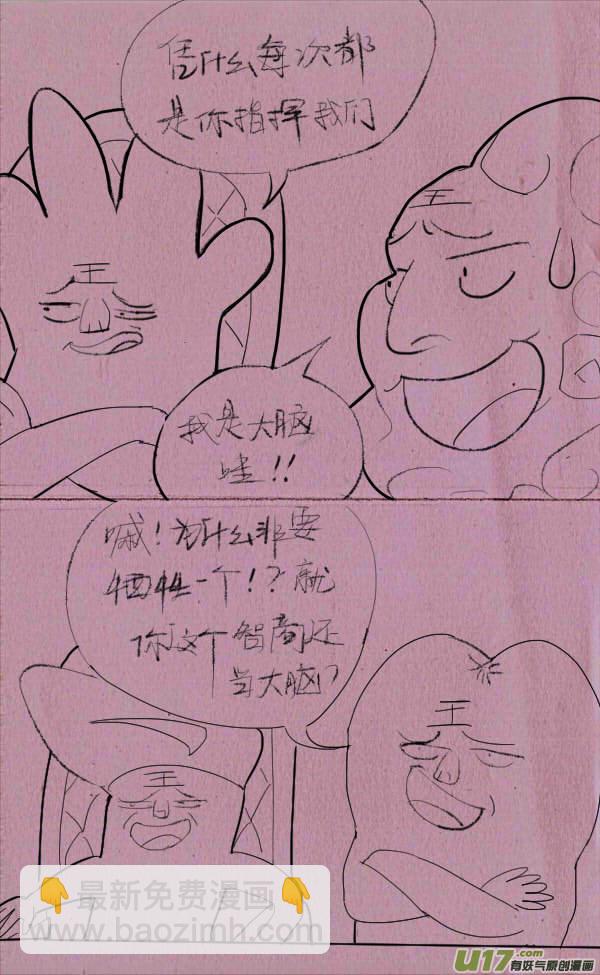 凭什么每次都
是你指挥我们
我是大脑
哇!!
嘁!为什么非要
牺牲一个!?就
你这个智商还
当大脑?
王
王
王
王
最新免费漫画
www.baozimh.com
U17.com
有妖气原创漫画